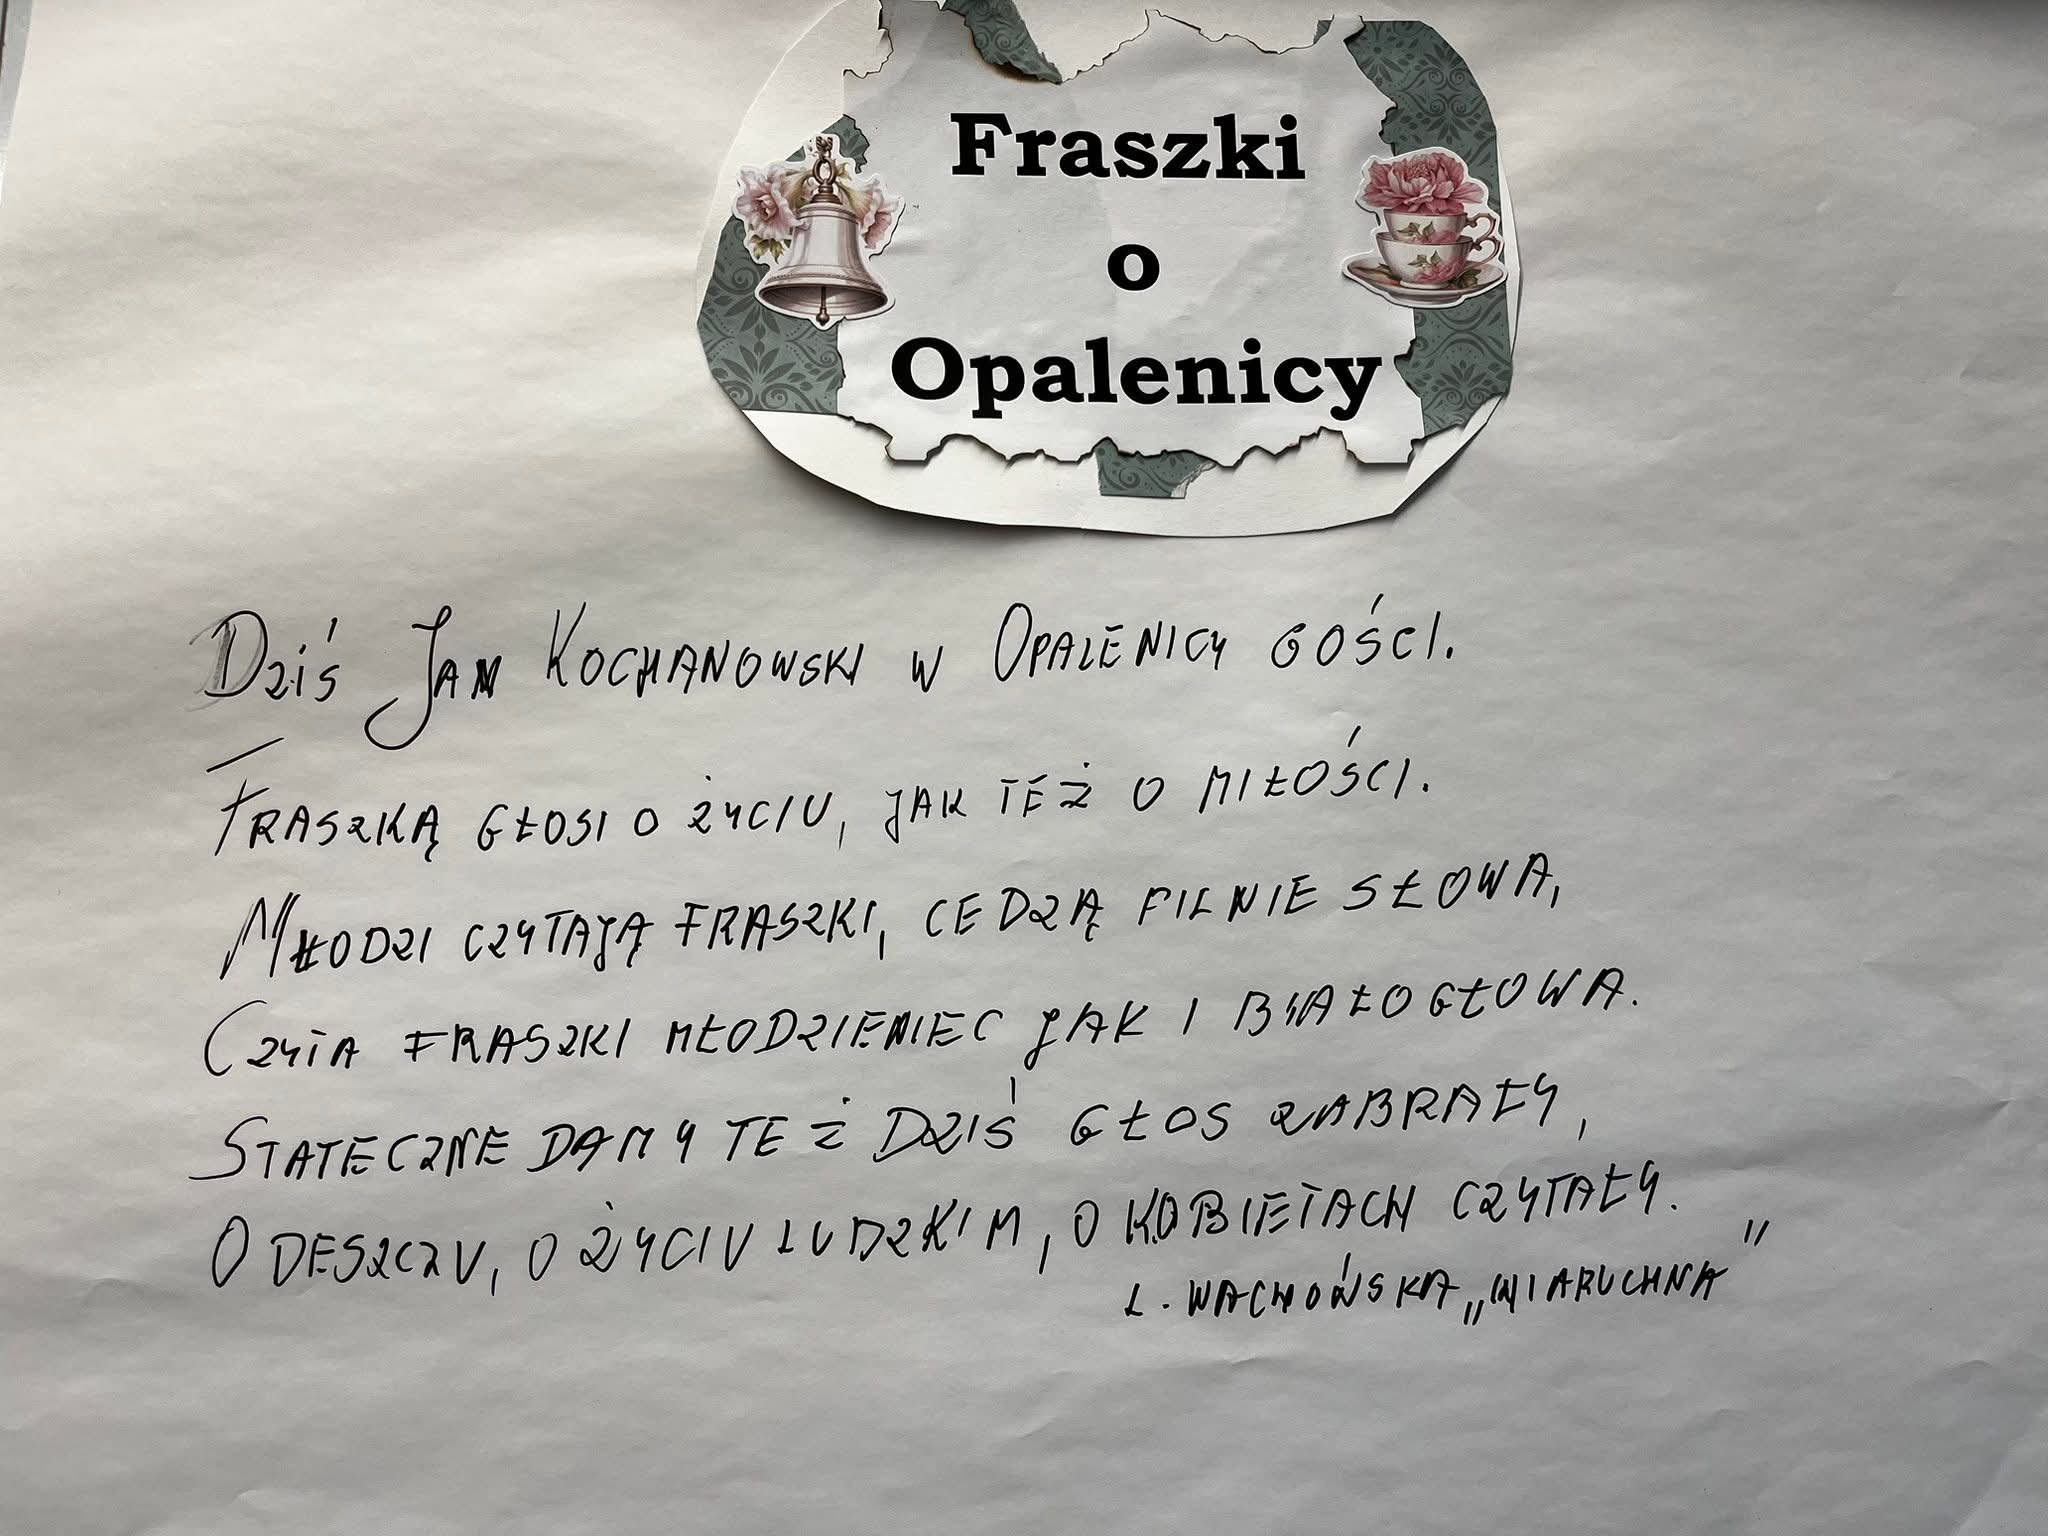 Fraszki
o
Opalenicy
Dziś Jan Kochanowski w Opalenicy gości.
Fraszką głosi o życiu, jak też o miłości.
Młodzi czytają fraszki, cedzą pilnie słowa,
Czyta fraszki młodzieniec jak i białogłowa.
Stateczne damy też dziś głos zabrały,
O deszczu, o życiu ludzkim, o kobietach czytały.
L. Wachońska „Wiaruchna”